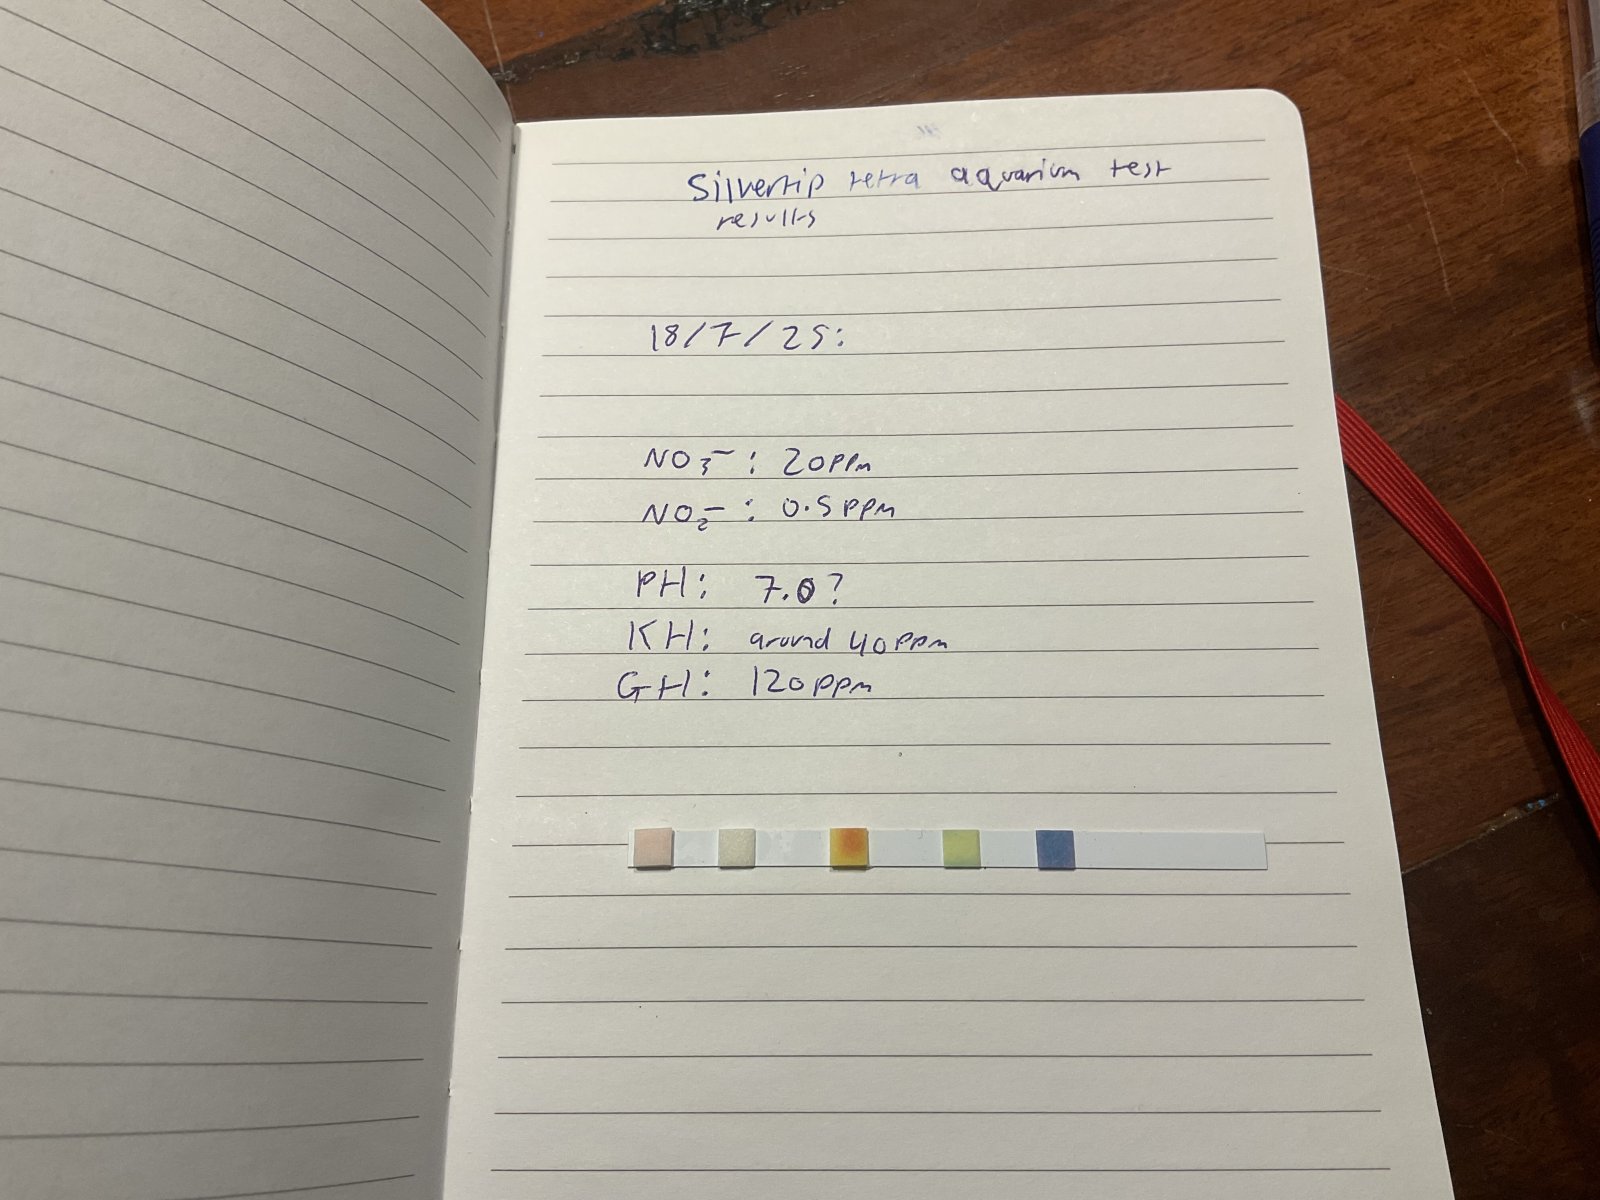 Silvertip tetra aquarium test
results
18/7/25:
NO₃⁻: 20ppm
NO₂⁻: 0.5ppm
PH: 7.0?
KH: around 40ppm
GH: 120ppm